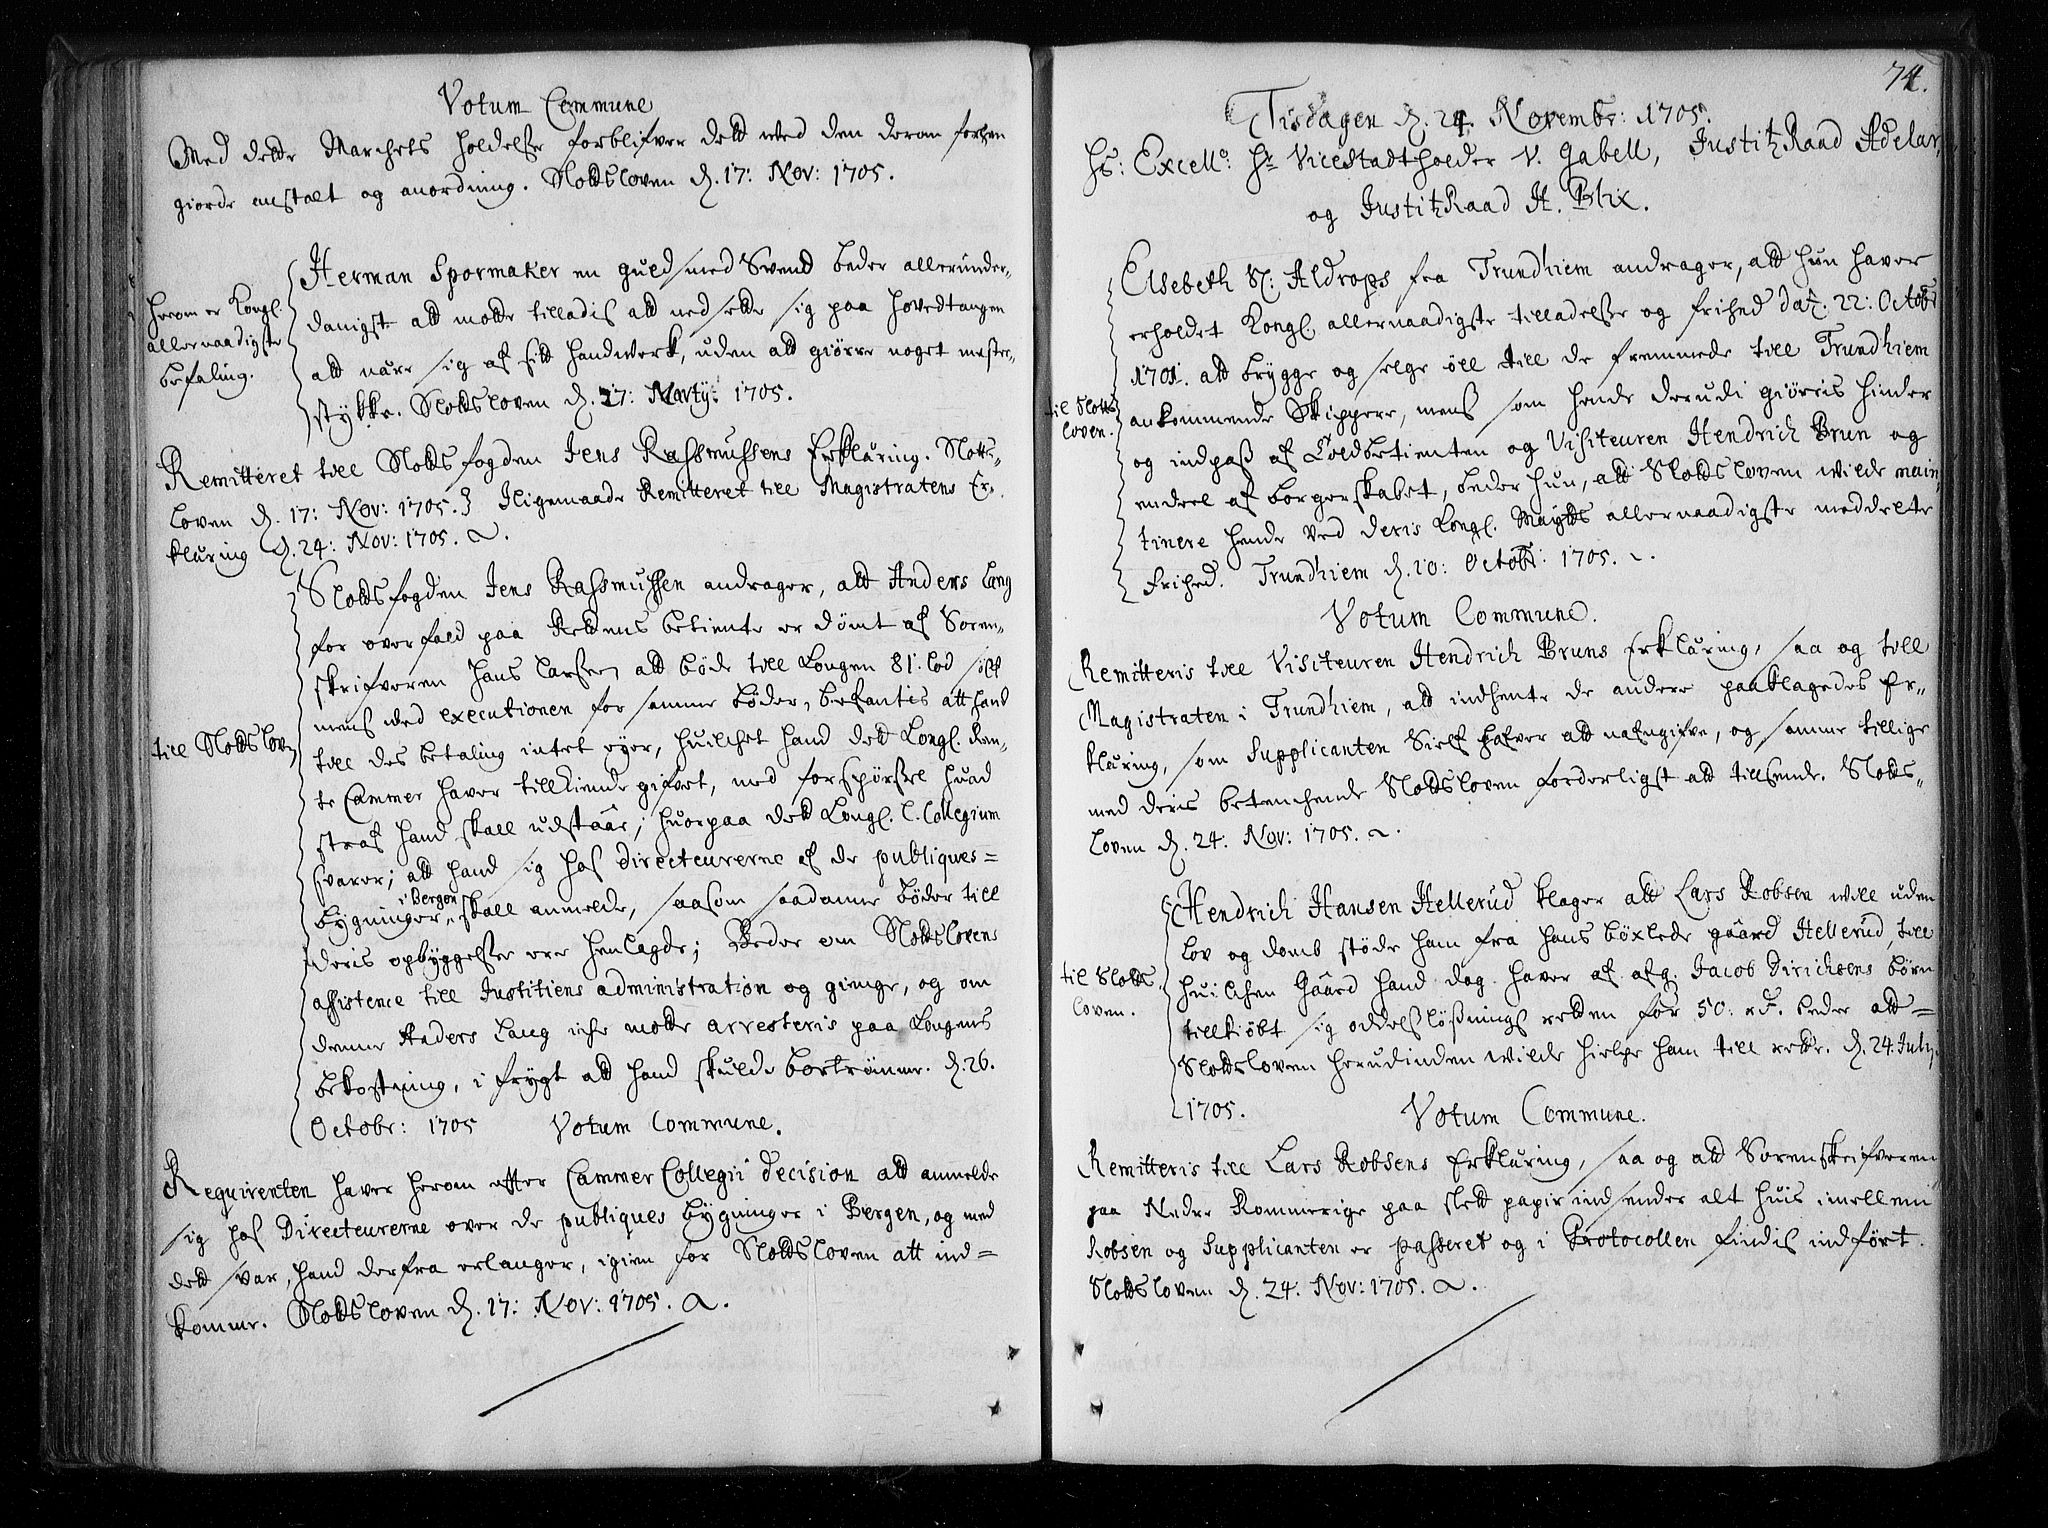 Votum Commune
Med dette Marchets holdelse forblifver dett ved den derom forhen
giorde anstalt og anordning. Slottsloven d. 17: Nov: 1705.
Herom er Kongl.
allernaadigste
befaling.
Herman Spormaker en guldsmed Svend beder allerunder,,
danigst att motte tilladis att nedsette sig paa hovedtangen
att nære sig af sitt handverk, uden att giørre noget mester,,
stykke. Slottsloven d. 27: Marty: 1705.
Remitteret till Slottsfogden Jens Rassmussens Erklæring. Slotts,,
loven d. 17: Nov: 1705.} Iligemaade Remitteret till Magistratens Er,,
klæring d. 24: Nov: 1705.
till Slottsloven
Slottsfogden Jens Rassmussen andrager, att Anders Lang
for overfald paa Rettens betiente er dømt af Soren,,
skrifveren Hans Larsen att bøde till Kongen 81. lod sølf
mens ved executionen for samme bøder, befantis att hand
till des betaling intet eyer, huilchet hand dett Kongl. Ren,,
te Cammer haver tillkiende gifvet, med forspørssel huad
straf hand skall udstaae; huorpaa dett Kongl. C. Collegium
svarer; att hand sig hos Directeurerne af de publiques=
bygninger i Bergen skall anmelde, saasom saadanne bøder till
deris opbyggelse ere henlagde; Beder om Slottslovens
assistence till Justitiens administration og gienge, og om
denne Anders Lang iche motte arresteris paa Kongens
bekostning, i frygt att hand skulde bortrømme. d. 26.
Octobr: 1705 Votum Commune.
Requirenten haver herom efter Cammer Collegii decision att anmelde
sig hos Directeurerne over de publiques bygninger i Bergen, og med
dett svar, hand derfra erlanger, igien for Slottsloven att ind=
komme. Slottsloven d. 17: Nov: 1705.
74.
Tisdagen d. 24. Novembr: 1705.
Hs: Excell: Hr ViceStadtholder V. Gabell, JustitzRaad Adelar,
og JustitzRaad A. Blix.
til Slotts
loven.
Elsebeth Sl: Aldrops fra Trundhiem andrager, att hun haver
erholdet Kongl. allernaadigste tilladelse og frihed dat. 22: Octobr
1701. att brygge og selge øll till de fremmede till Trundhiem
ankommende Skippere, mens som hende derudi giørris hinder
og indpass af Toldbetienten og Visiteuren Hendrich Brun og
endeel af borgerskabet, beder hun, att Slottsloven vilde main,,
tinere hende ved deris Kongl. Maytts allernaadigste meddelte
frihed. Trundhiem d. 10: Octobr: 1705.
Votum Commune.
Remitteris till Visiteuren Hendrich Bruns Erklæring, saa og till
Magistraten i Trundhiem, att indhente de andere paaklagedes Er,,
klæring, som Supplicanten Sielf hafver att nafngifve, og samme tillige
med deris betenchende Slottsloven forderligst att tillsende. Slotts,,
loven d. 24: Nov: 1705.
til Slotts
loven.
Hendrich Hansen Hellerud klager att Lars Robsen will uden
lov og domb støde ham fra hans böxlede gaard Hellerud, till
huilchen Gaard hand dog haver af afg. Jacob Dirichsens børn
tillkiøbt sig oddelssløssnings retten for 50: rd. beder att=
Slottsloven herudinden vilde hielpe ham till rette. d. 24: July
1705. Votum Commune.
Remitteris till Lars Robsens Erklæring, saa og att Sorenskrifveren
paa Nedre Rommerige paa slett papir indsender alt huis imellem
Robsen og Supplicanten er passeret og i Protocollen findis indført.
Slottsloven d. 24: Nov: 1705.